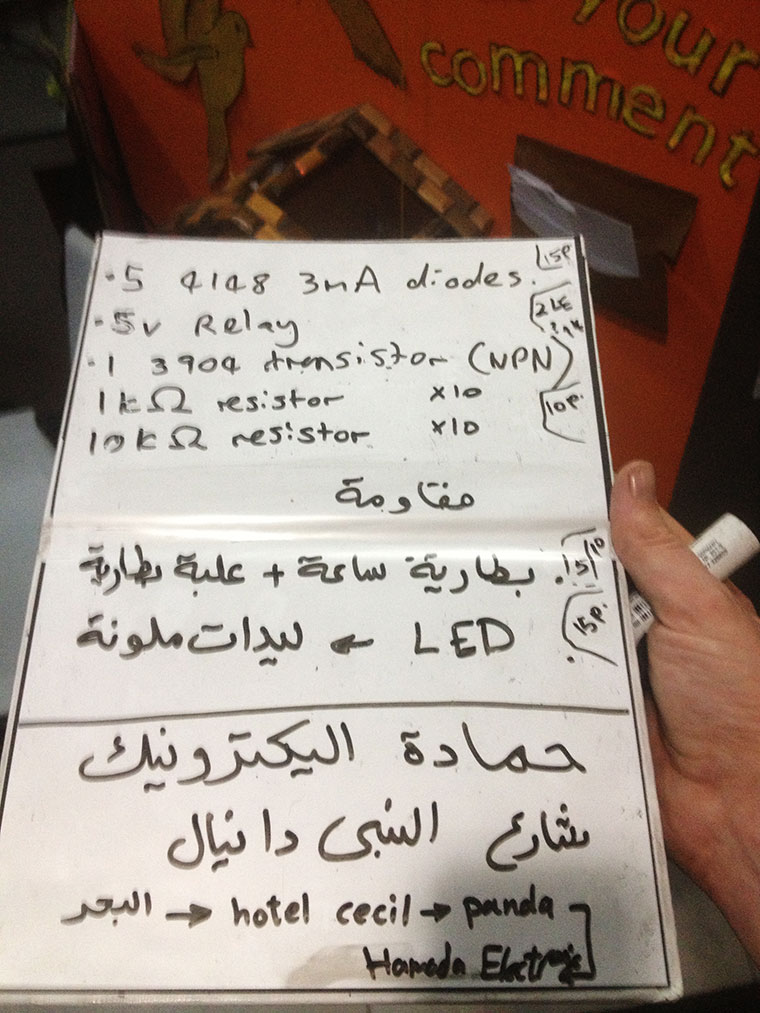 your
comment
.5 4148 3mA diodes. 15p.
.5v Relay 2LE
.1 3904 transistor (NPN)
1kΩ resistor x10 10p.
10kΩ resistor x10
مقاومة
بطارية ساعة + علبة بطارية 15/10
LED ← ليدات ملونة 15p.
حمادة اليكترونيك
شارع النبى دانيال
البحر → hotel cecil → panda
Hamada Electronic